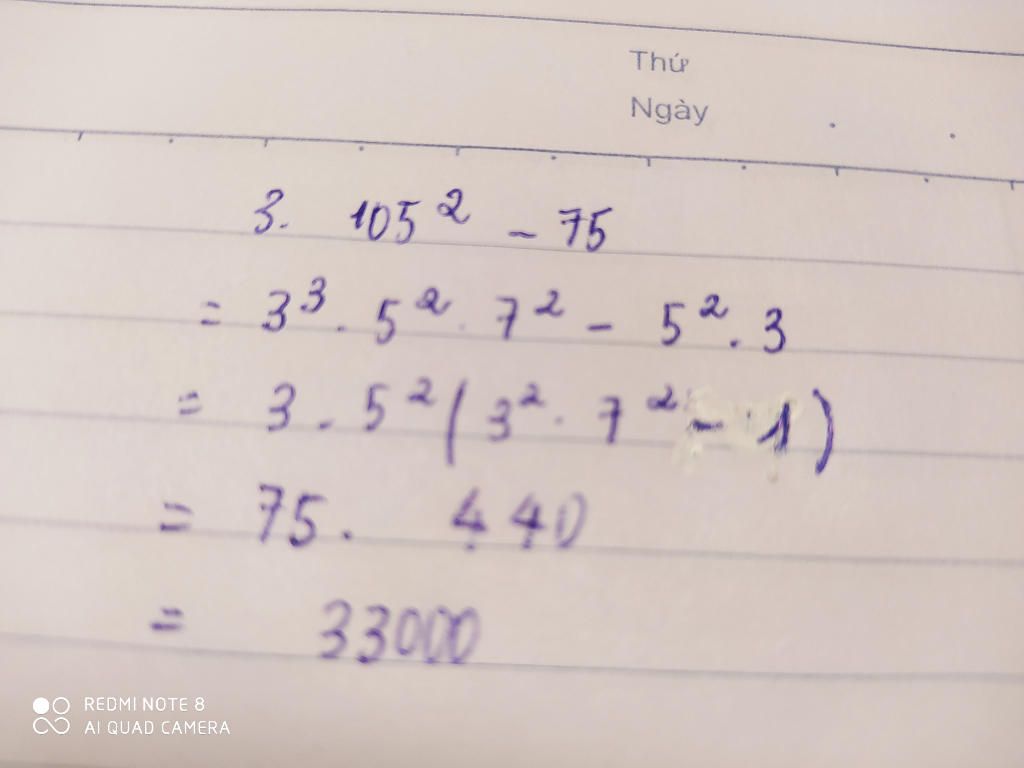 Thứ
Ngày
3. 105² - 75
= 3³. 5². 7² - 5². 3
= 3. 5² (3². 7² - 1)
= 75. 440
= 33000
REDMI NOTE 8
AI QUAD CAMERA